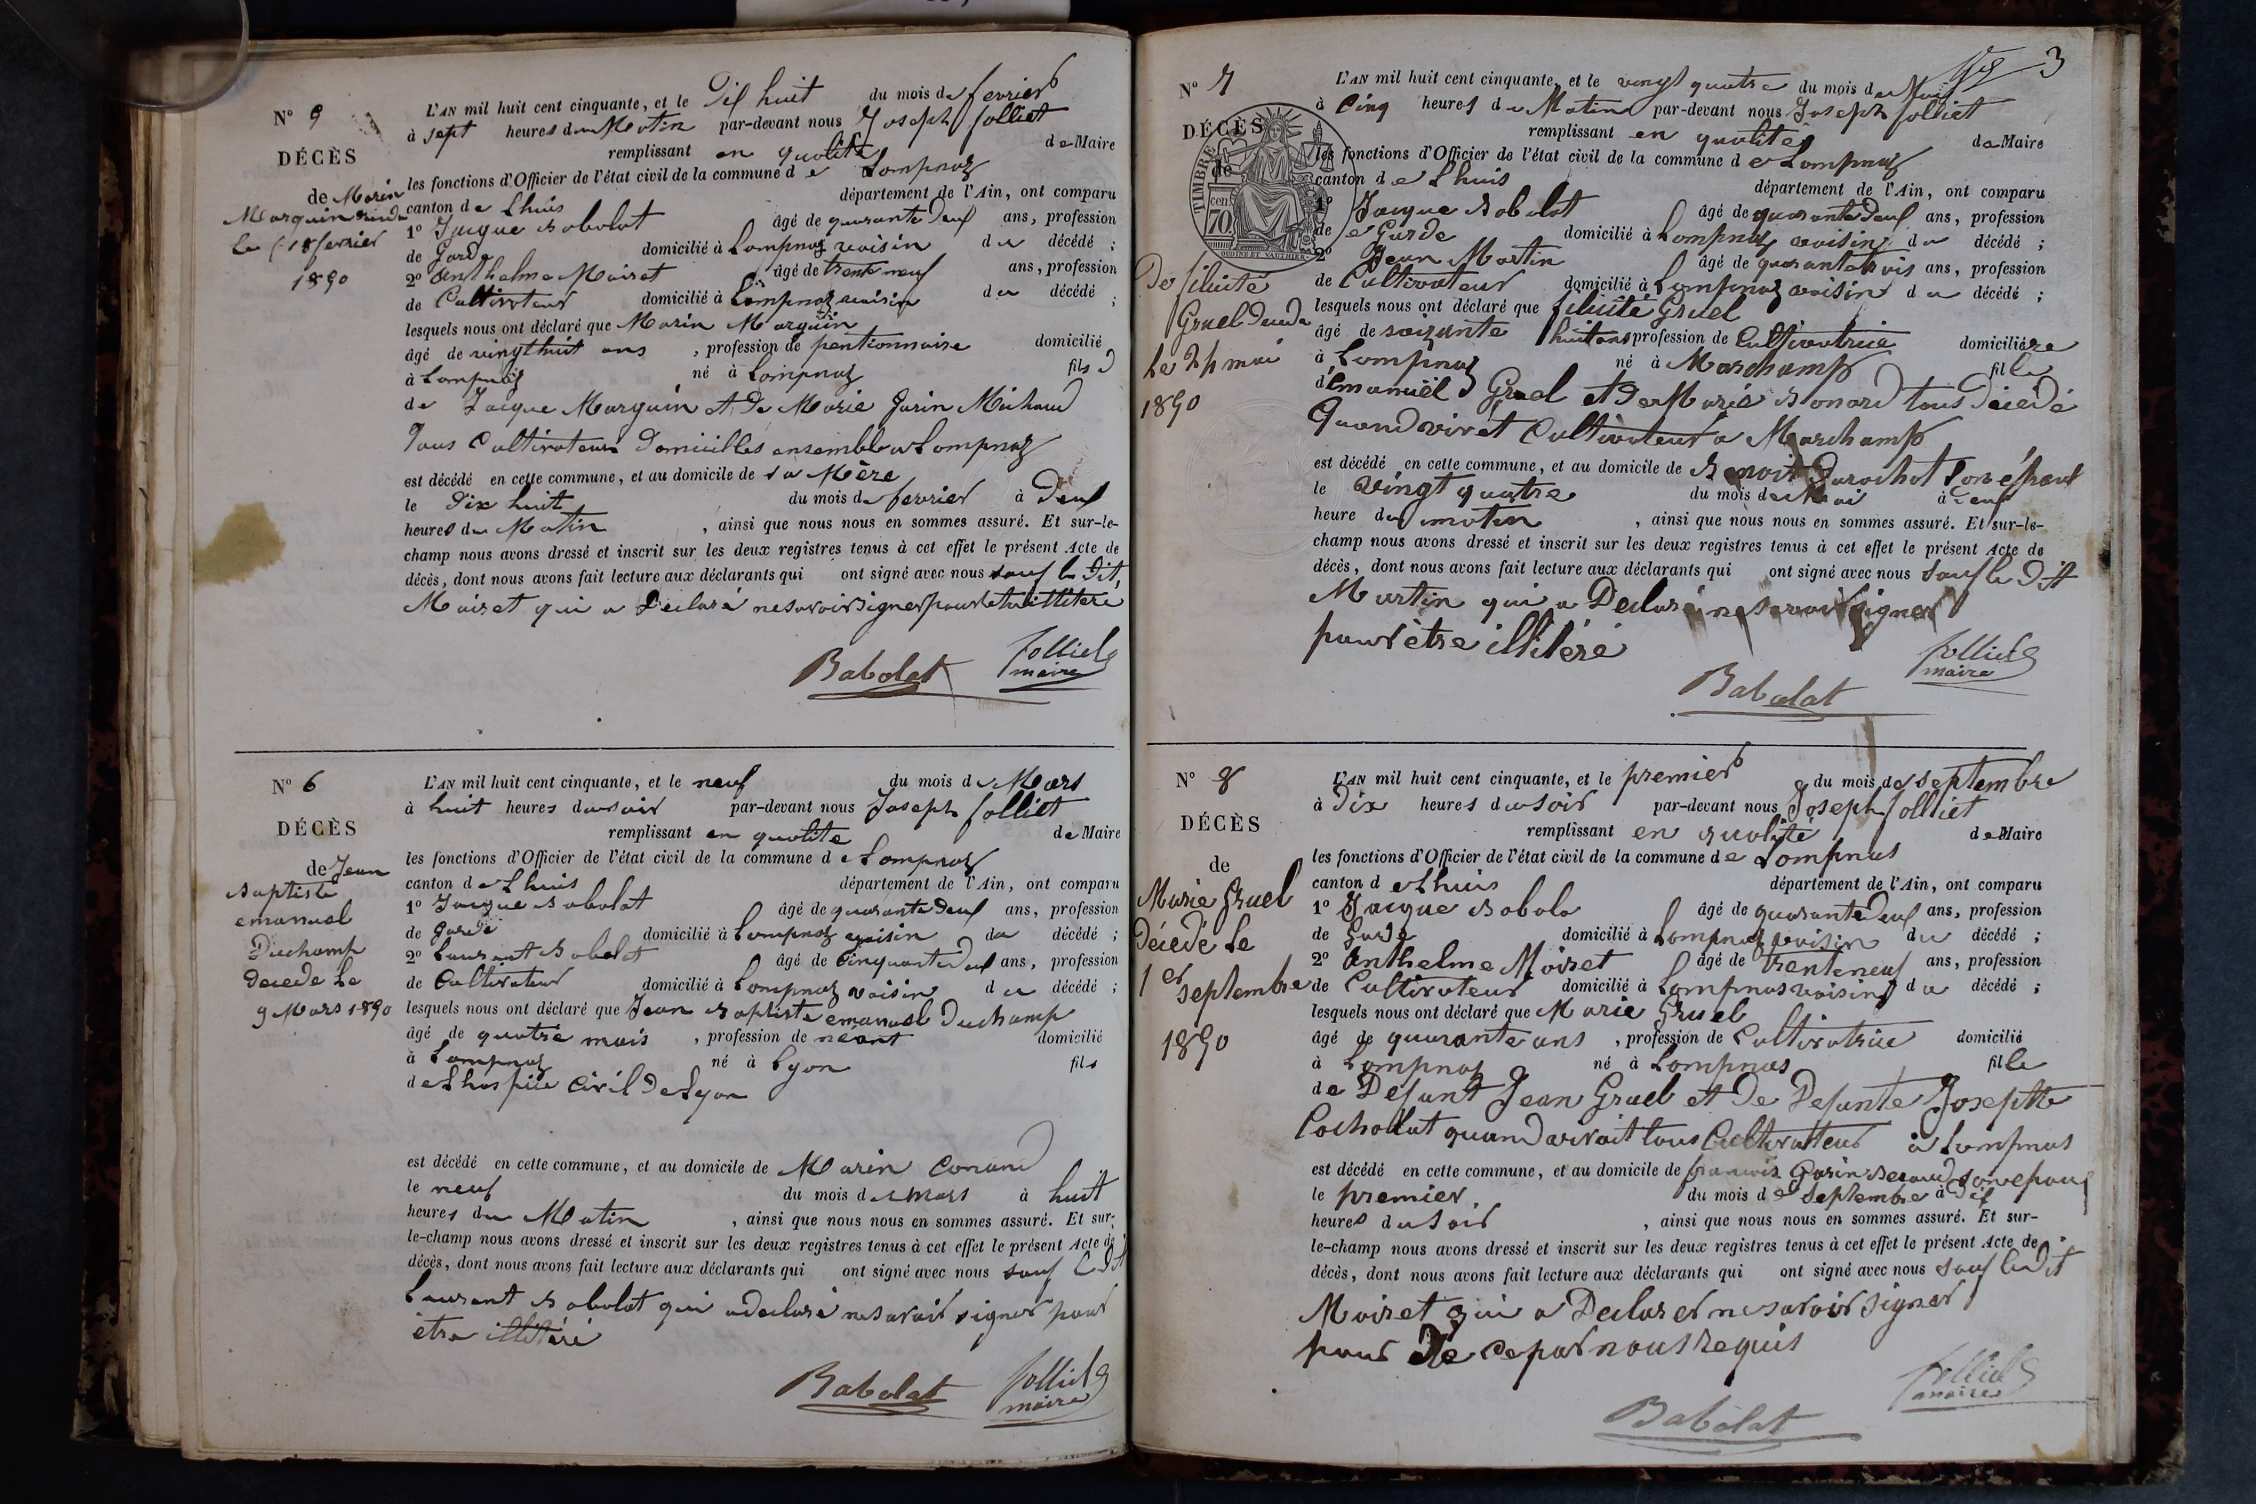 N° 5
DÉCÈS
de Marin
Marguin decédé
le 18 fevrier
1850
L'AN mil huit cent cinquante, et le Dix huit du mois de fevrier
à sept heures du Matin par-devant nous Joseph Jolliet
remplissant en qualité de Maire
les fonctions d'Officier de l'état civil de la commune de Lompnaz
canton de Lhuis département de l'Ain, ont comparu
1° Jacque Babolat âgé de quarante Deux ans, profession
de Garde domicilié à Lompnaz voisin du décédé ;
2° Anthelme Moiret âgé de trente neuf ans, profession
de Cultivateur domicilié à Lompnaz voisin du décédé ;
lesquels nous ont déclaré que Marin Marguin
âgé de vingt huit ans , profession de pentionnaire domicilié
à Lompnaz né à Lompnaz fils
de Jacque Marguin et De Marie Garin Michaud
Tous Cultivateurs Domicilles ensemble a Lompnaz
est décédé en cette commune, et au domicile de sa Mère
le Dix huit du mois de fevrier à Deux
heures du Matin , ainsi que nous nous en sommes assuré. Et sur-le-
champ nous avons dressé et inscrit sur les deux registres tenus à cet effet le présent Acte de
décès, dont nous avons fait lecture aux déclarants qui ont signé avec nous sauf le Dit
Moiret qui a Declaré ne savoir signer pour etre illitere
Babolat Jolliet
maire
N° 6
DÉCÈS
de Jean
Baptiste
emanuel
Duchamp
Decede Le
9 Mars 1850
L'AN mil huit cent cinquante, et le neuf du mois de Mars
à huit heures du soir par-devant nous Joseph Jolliet
remplissant en qualite de Maire
les fonctions d'Officier de l'état civil de la commune de Lompnaz
canton de Lhuis département de l'Ain, ont comparu
1° Jacque Babolat âgé de quarante Deux ans, profession
de Garde domicilié à Lompnaz voisin du décédé ;
2° Laurent Babolat âgé de Cinquante Deux ans, profession
de Cultivateur domicilié à Lompnaz voisin du décédé ;
lesquels nous ont déclaré que Jean Baptiste emanuel Duchamp
âgé de quatre mois , profession de néant domicilié
à Lompnaz né à Lyon fils
de Lhospice Civil De Lyon
est décédé en cette commune, et au domicile de Marin Conand
le neuf du mois de Mars à huit
heures du Matin , ainsi que nous nous en sommes assuré. Et sur-
le-champ nous avons dressé et inscrit sur les deux registres tenus à cet effet le présent Acte de
décès, dont nous avons fait lecture aux déclarants qui ont signé avec nous sauf Le Dit
Laurent Babolat qui a declaré ne savoir signer pour
etre illitéré
Babolat Jolliet
maire
3
N° 7
DÉCÈS
de
TIMBRE
70
De félicité
Gruel Decedee
Le 24 mai
1850
L'AN mil huit cent cinquante, et le vingt quatre du mois de Mai
à Cinq heures du Matin par-devant nous Joseph Jolliet
remplissant en qualité de Maire
les fonctions d'Officier de l'état civil de la commune de Lompnaz
canton de Lhuis département de l'Ain, ont comparu
1° Jacque Babolat âgé de quarante Deux ans, profession
de Garde domicilié à Lompnaz voisin du décédé ;
2° Jean Martin âgé de quarante trois ans, profession
de Cultivateur domicilié à Lompnaz voisin du décédé ;
lesquels nous ont déclaré que félicité Gruel
âgé de soixante huit ans profession de Cultivatrice domiciliére
à Lompnaz né à Marchamp fille
d'Emanuël Gruel et De Marie Bonard tous Décédé
Quand vivét Cultivateur a Marchamp
est décédé en cette commune, et au domicile de Benoit Durochat son époux
le Vingt quatre du mois de Mai à Deux
heure du matin , ainsi que nous nous en sommes assuré. Et sur-le-
champ nous avons dressé et inscrit sur les deux registres tenus à cet effet le présent Acte de
décès, dont nous avons fait lecture aux déclarants qui ont signé avec nous sauf le Dit
Martin qui a Declaré ne savoir signer
pour être illitéré
Babolat Jolliet
maire
N° 8
DÉCÈS
de
Marie Gruel
Décedé Le
1er septembre
1850
L'AN mil huit cent cinquante, et le premier du mois de septembre
à Dix heures du soir par-devant nous Joseph Jolliet
remplissant en qualité de Maire
les fonctions d'Officier de l'état civil de la commune de Lompnas
canton de Lhuis département de l'Ain, ont comparu
1° Jacque Babola âgé de quarante Deux ans, profession
de Garde domicilié à Lompnaz voisin du décédé ;
2° Anthelme Moiret âgé de trente neuf ans, profession
de Cultivateur domicilié à Lompnas voisin du décédé ;
lesquels nous ont déclaré que Marie Gruel
âgé de quarante ans , profession de Cultivatrice domicilié
à Lompnaz né à Lompnas fille
de Defunt Jean Gruel et De Defunte Josepte
Cochollat quand vivait tous Cultivatteur à Lompnas
est décédé en cette commune, et au domicile de francois Garin son epoux
le premier du mois de septembre à Dix
heures du soir , ainsi que nous nous en sommes assuré. Et sur-
le-champ nous avons dressé et inscrit sur les deux registres tenus à cet effet le présent Acte de
décès, dont nous avons fait lecture aux déclarants qui ont signé avec nous sauf le Dit
Moiret qui a Declarer ne savoir signer
pour De ce par nous requis
Babolat Jolliet
maire